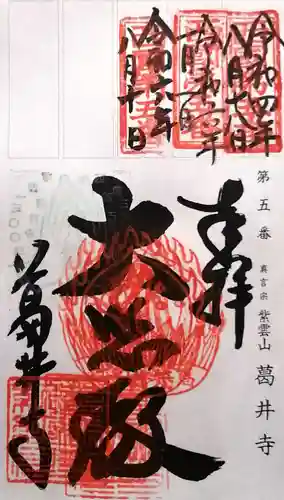 令和四年
八月十八日
令和二年
令和六年
八月十日
第五番 真言宗 紫雲山 葛井寺
奉拝
大悲殿
葛井寺